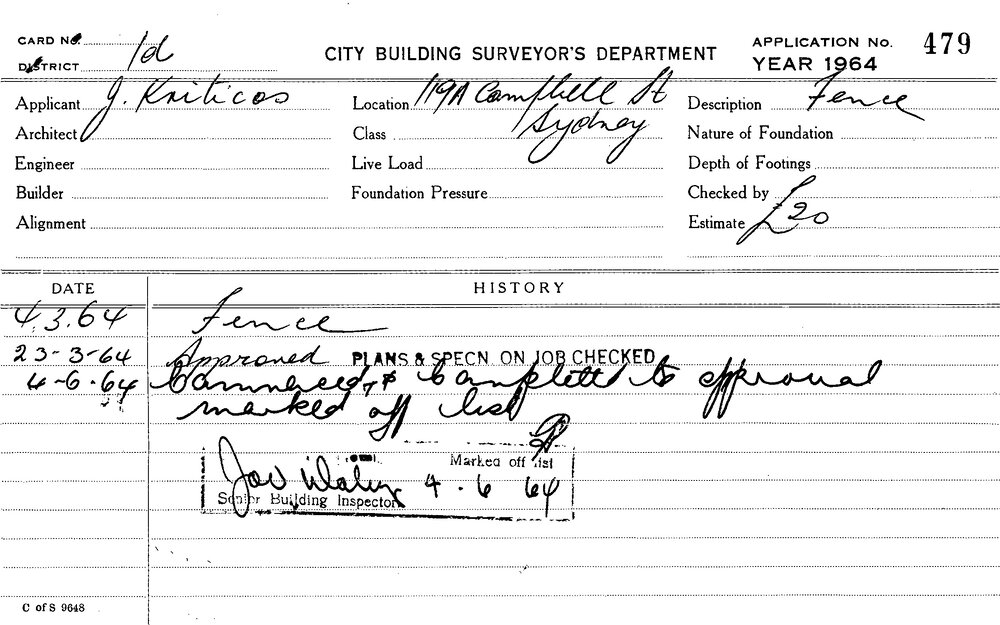 CARD No.
DISTRICT 1d
CITY BUILDING SURVEYOR'S DEPARTMENT
APPLICATION No. 479
YEAR 1964
Applicant J. Kriticos
Location 119A Campbell St
Sydney
Description Fence
Architect
Class
Nature of Foundation
Engineer
Live Load
Depth of Footings
Builder
Foundation Pressure
Checked by
Alignment
Estimate £20
DATE HISTORY
4.3.64 Fence
23-3-64 Approved PLANS & SPECN. ON JOB CHECKED
4-6-64 Commenced & Completed to approval
marked off list
Marked off list
4.6 64
Senior Building Inspector
C of S 9648